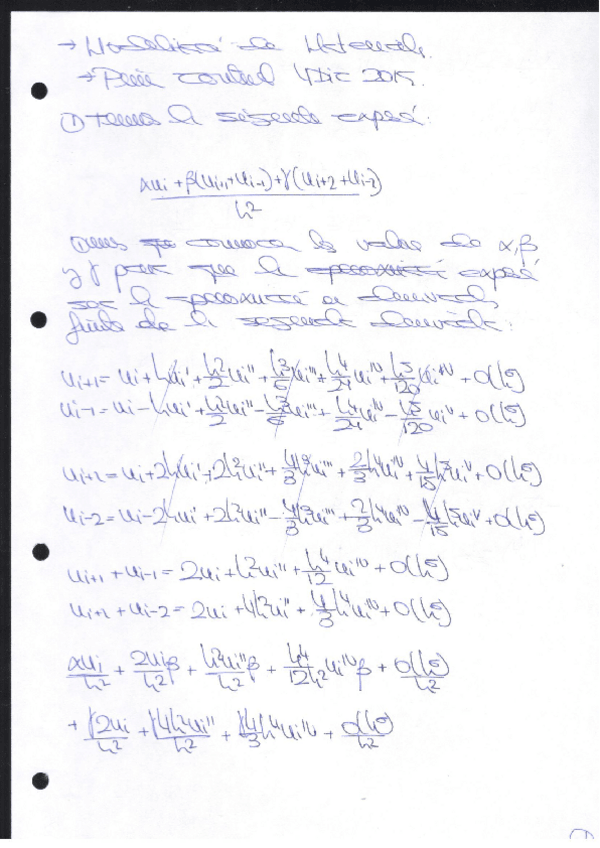 → Modelització de Materials.
→ Primer control 4 Dic 2015.
① tenemos la siguiente expresió:
αui + β(ui+1+ui-1) + γ(ui+2+ui-2)
h²
conocer los valores de α, β
y γ para que la expresió
sea la aproximació en
finitas de la segunda derivada:
ui+1 = ui + hui' + h²/2 ui'' + h³/6 ui''' + h⁴/24 ui^IV + h⁵/120 ui^V + O(h⁶)
ui-1 = ui - hui' + h²/2 ui'' - h³/6 ui''' + h⁴/24 ui^IV - h⁵/120 ui^V + O(h⁶)
ui+2 = ui + 2hui' + 2h²ui'' + 4/3 h³ui''' + 2/3 h⁴ui^IV + 4/15 h⁵ui^V + O(h⁶)
ui-2 = ui - 2hui' + 2h²ui'' - 4/3 h³ui''' + 2/3 h⁴ui^IV - 4/15 h⁵ui^V + O(h⁶)
ui+1 + ui-1 = 2ui + h²ui'' + h⁴/12 ui^IV + O(h⁶)
ui+2 + ui-2 = 2ui + 4h²ui'' + 4/3 h⁴ui^IV + O(h⁶)
αui/h² + 2uiβ/h² + h²ui''β/h² + h⁴/12h² ui^IV β + O(h⁶)/h²
+ γ2ui/h² + γ4h²ui''/h² + γ4/3 h⁴ui^IV + O(h⁶)/h²